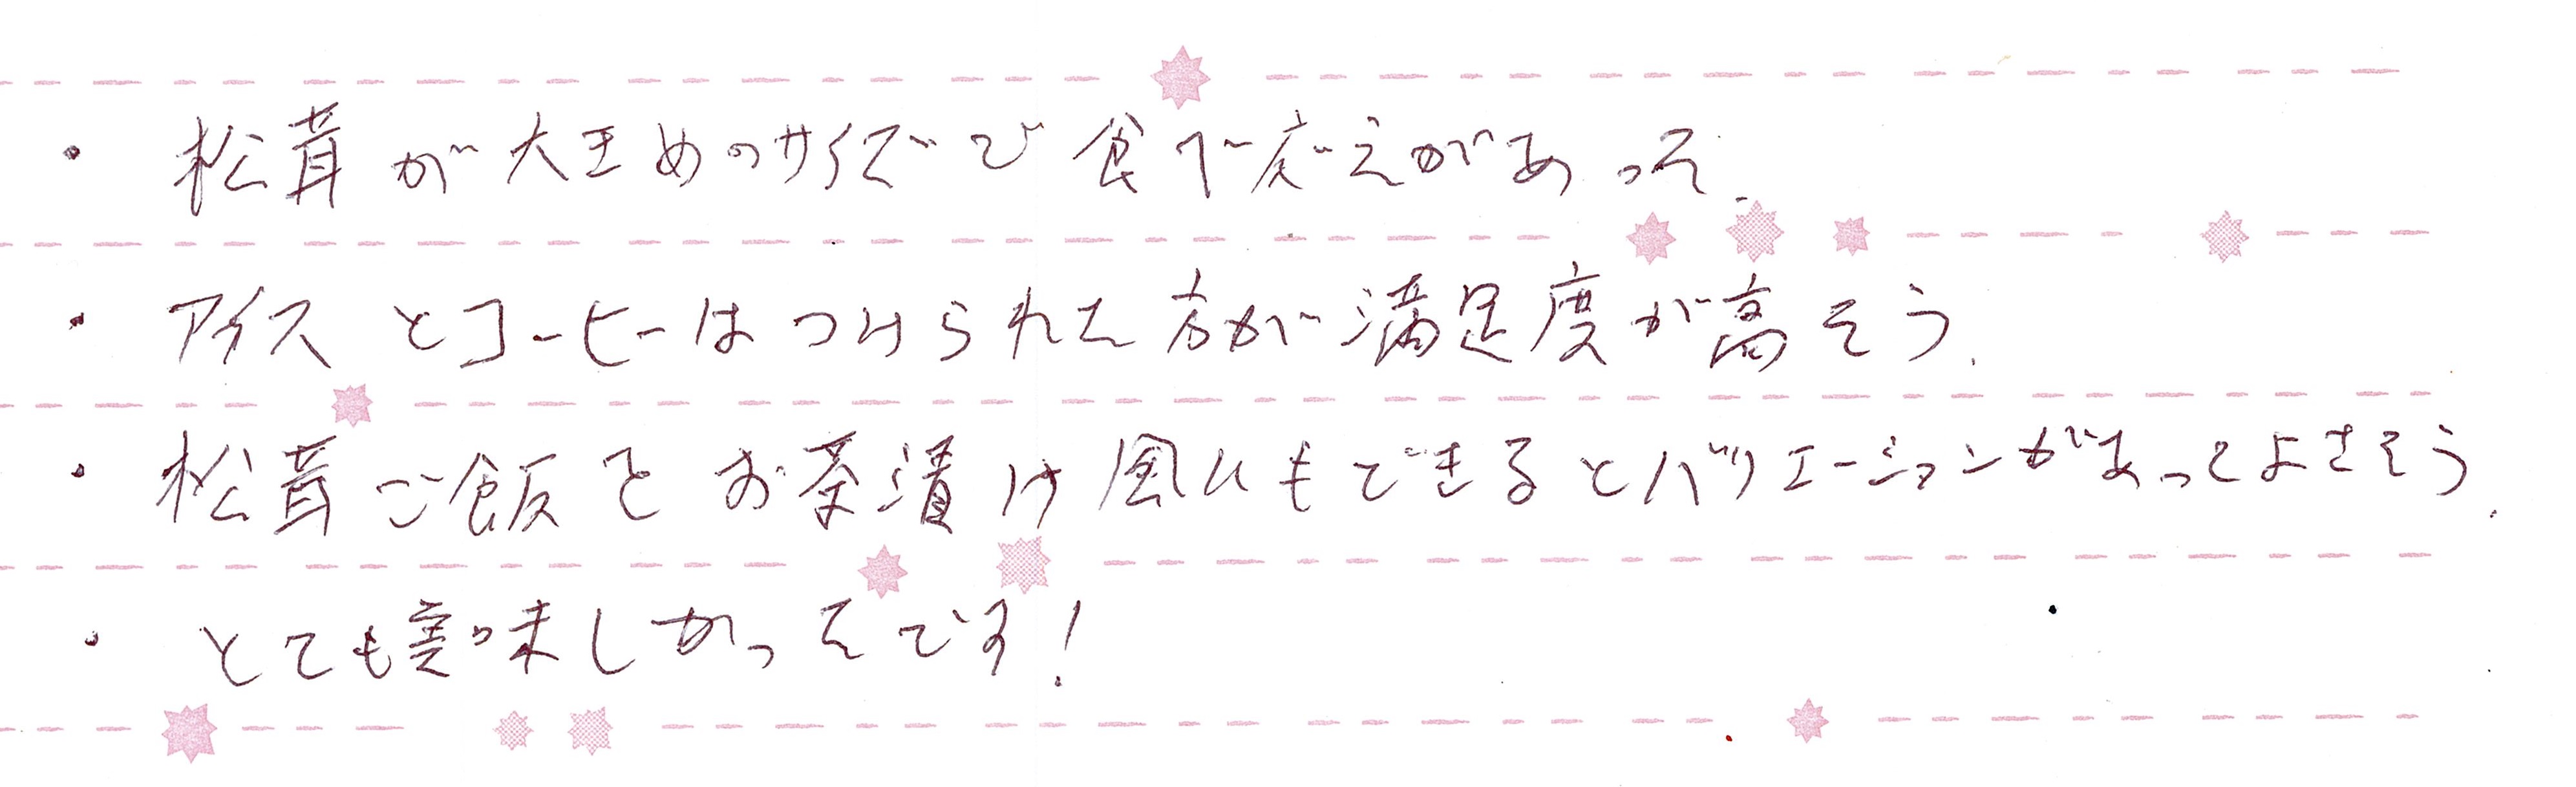 ・松茸が大きめのサイズで食べ応えがあった.
・アイスとコーヒーはつけられた方が満足度が高そう.
・松茸ご飯をお茶漬け風にもできるとバリエーションがあってよさそう.
・とても美味しかったです!